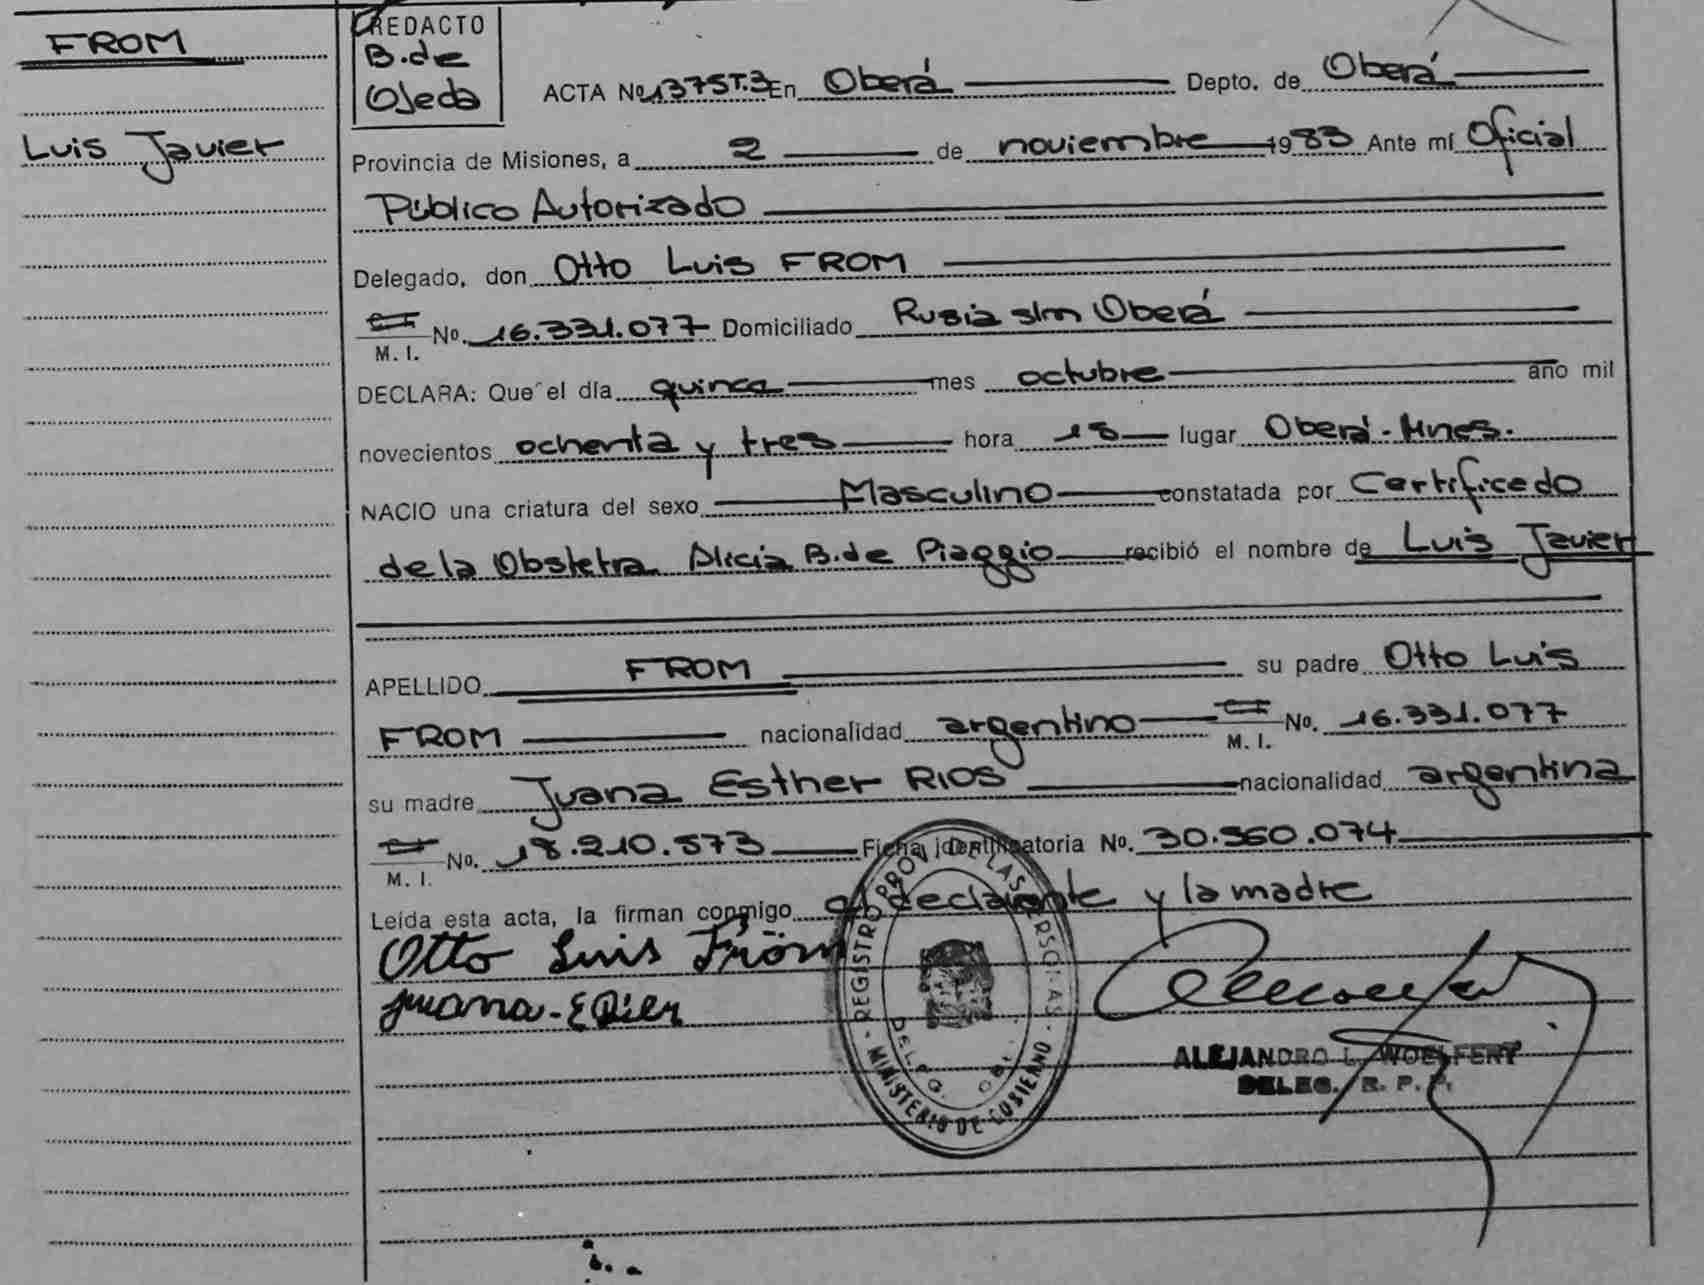 FROM
Luis Javier
REDACTO
B.de
Ojeda
ACTA Nº 1375T.3 En Oberá Depto. de Oberá
Provincia de Misiones, a 2 de noviembre 1983 Ante mí Oficial
Público Autorizado
Delegado, don Otto Luis FROM
M. I. No. 16.331.077 Domiciliado Rusia s/n Oberá
DECLARA: Que el día quince mes octubre año mil
novecientos ochenta y tres hora 18 lugar Oberá - Mnes.
NACIO una criatura del sexo Masculino constatada por Certificado
de la Obstetra Alicia B.de Piaggio recibió el nombre de Luis Javier
APELLIDO FROM su padre Otto Luis
FROM nacionalidad argentino M. I. No. 16.331.077
su madre Juana Esther RIOS nacionalidad argentina
M. I. No. 18.210.573 Ficha identificatoria No. 30.560.074
Leída esta acta, la firman conmigo el declarante y la madre
Otto Luis Fröm
Juana - E
REGISTRO PROV. DE LAS PERSONAS
DELEG.
MINISTERIO DE GOBIERNO
ALEJANDRO L. WOELFERT
DELEG. R. P. P.